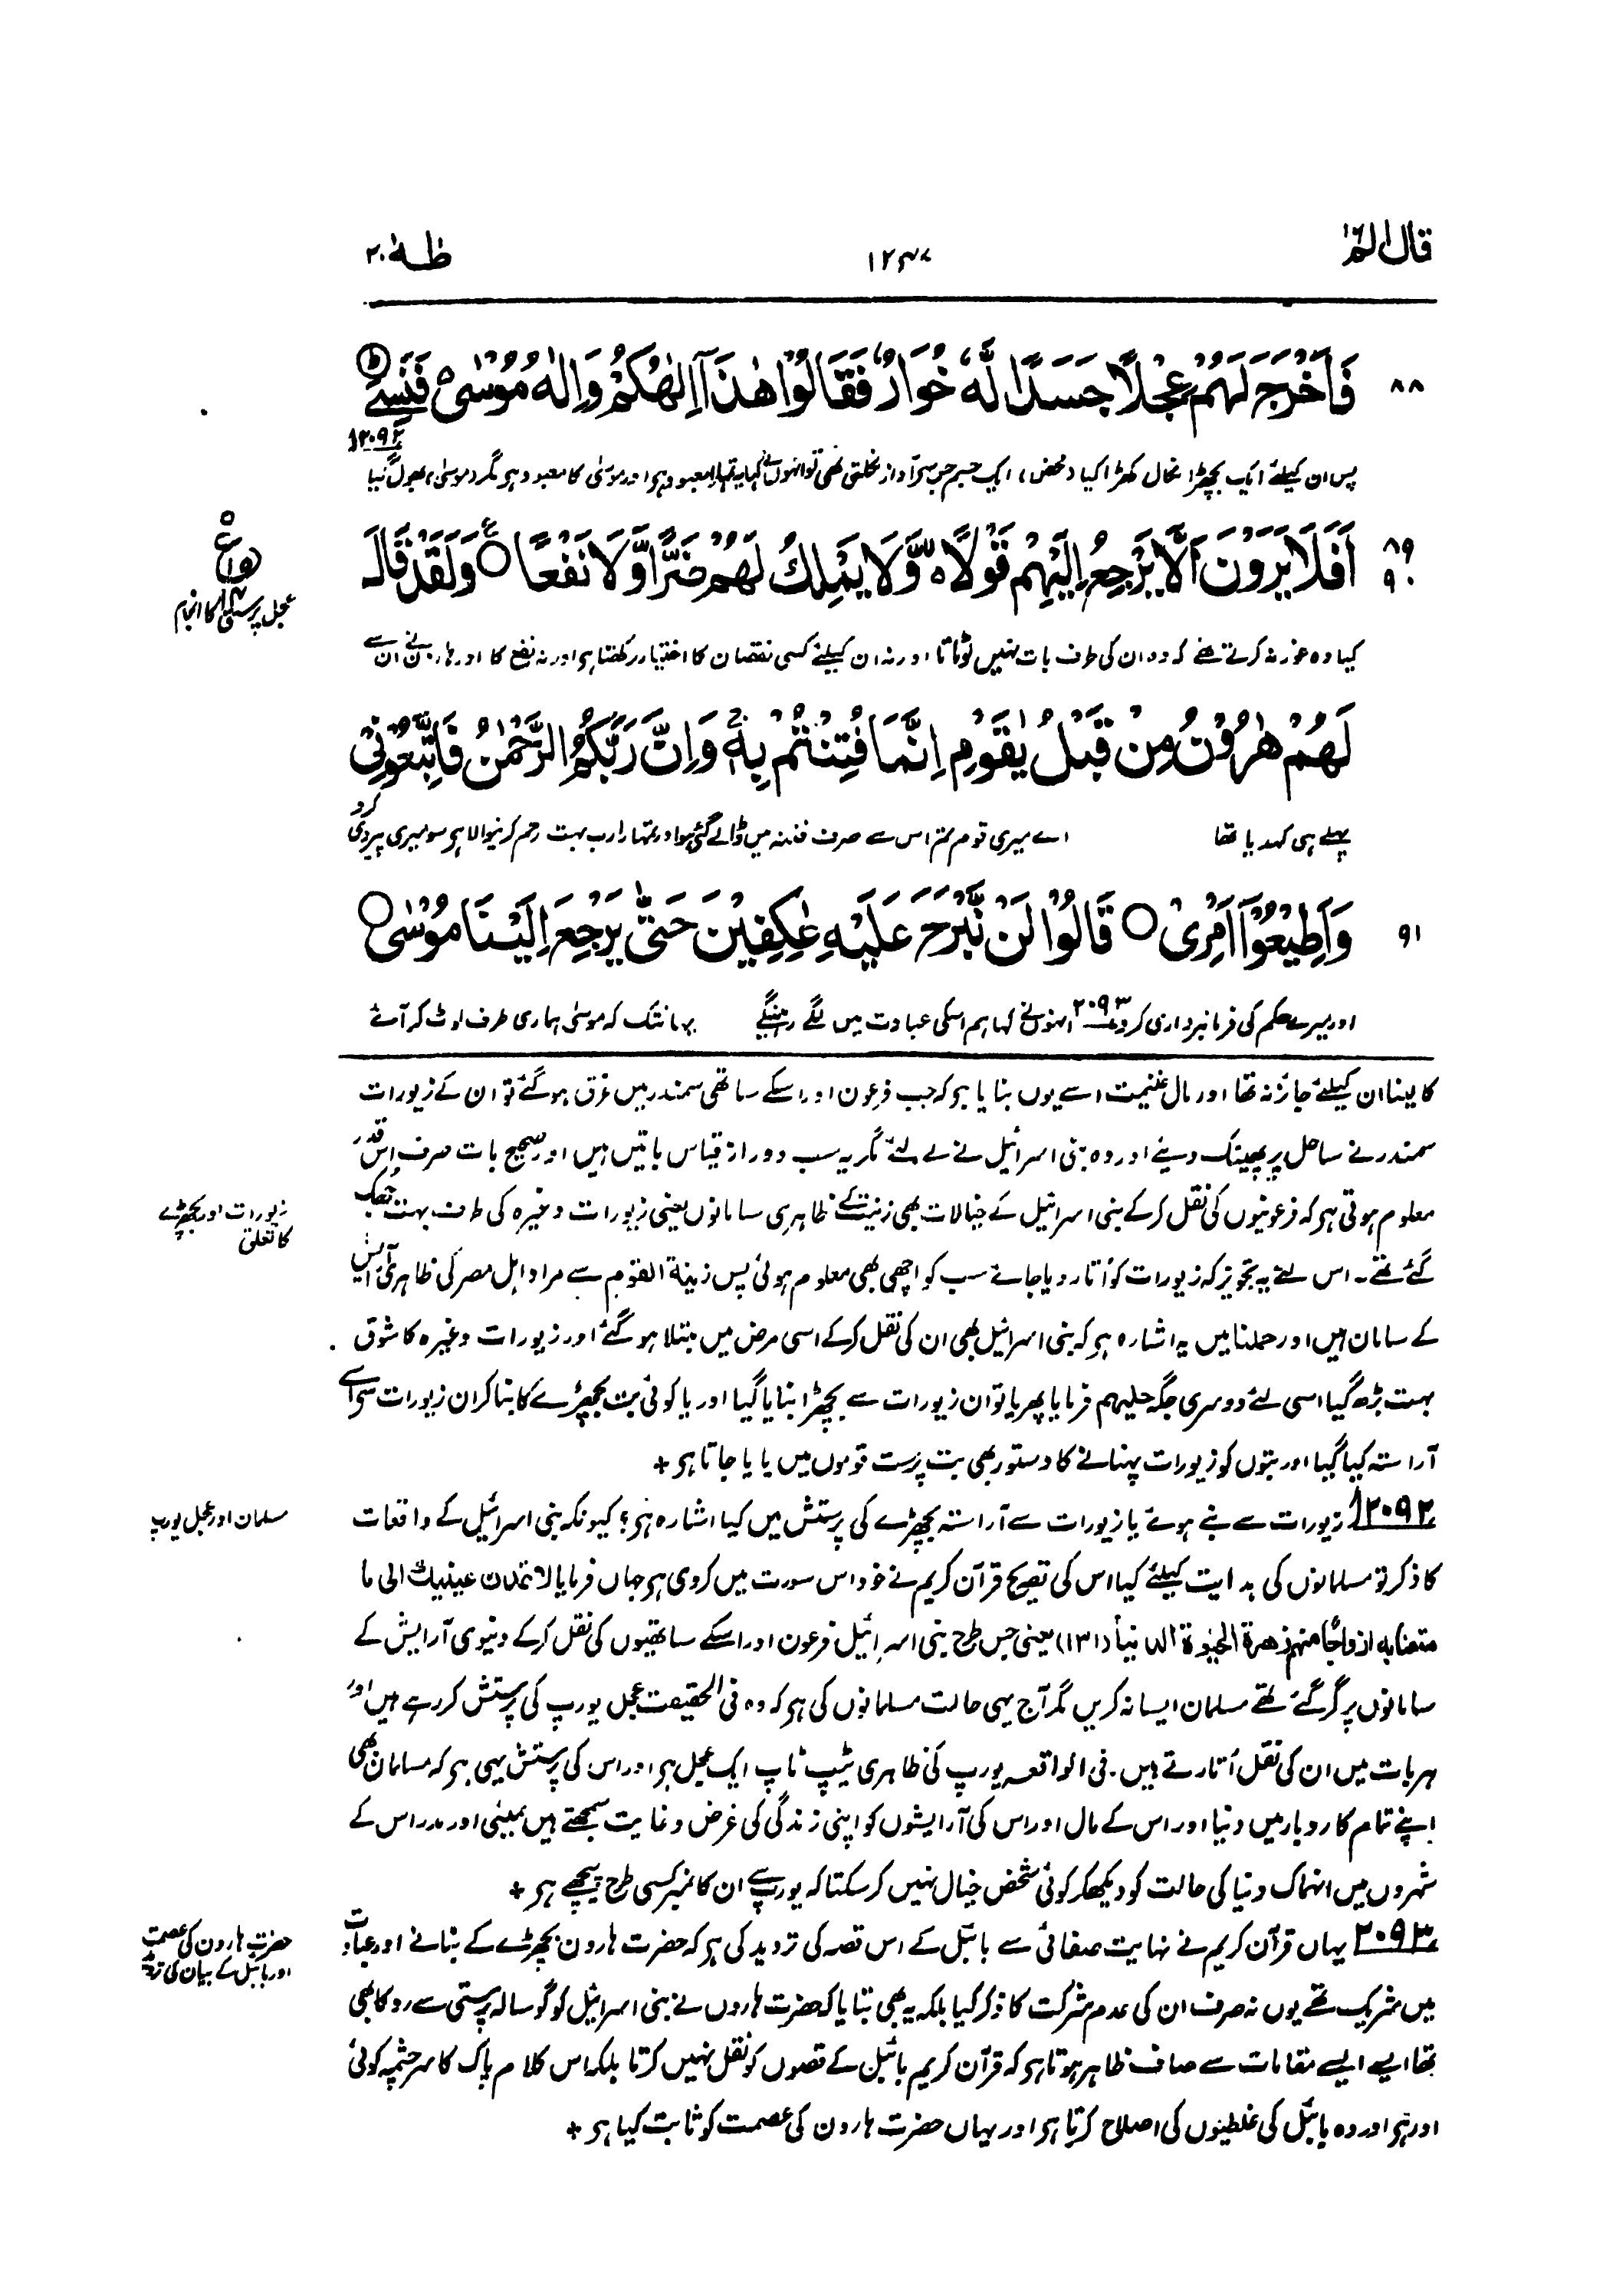 قال الم ۱۶
۱۲۳۷
طٰهٰ ۲۰
۸۸
فَاَخْرَجَ لَهُمْ عِجْلًا جَسَدًا لَّهٗ خُوَارٌ فَقَالُوْا هٰذَاۤ اِلٰهُكُمْ وَاِلٰهُ مُوْسٰى فَنَسِیَ
۲۰۹۲
پس ان کیلئے ایک بچھڑا نکال کھڑا کیا (محض) ایک جسم جس سے آواز نکلتی تھی تو انہوں نے کہا یہ تمہارا معبود ہے اور موسٰی کا معبود ہے مگر (موسٰی) بھول گیا
۸۹
۹۰
اَفَلَا یَرَوْنَ اَلَّا یَرْجِعُ اِلَیْهِمْ قَوْلًا ۙ وَّلَا یَمْلِكُ لَهُمْ ضَرًّا وَّلَا نَفْعًا ○ وَلَقَدْ قَالَ
عجل پرستی کا انجام
کیا وہ غور نہ کرتے تھے کہ وہ ان کی طرف بات نہیں لوٹاتا اور نہ ان کیلئے کسی نقصان کا اختیار رکھتا ہے اور نہ نفع کا اور ہارون نے ان سے
لَهُمْ هٰرُوْنُ مِنْ قَبْلُ یٰقَوْمِ اِنَّمَا فُتِنْتُمْ بِهٖ ۚ وَاِنَّ رَبَّكُمُ الرَّحْمٰنُ فَاتَّبِعُوْنِیْ
پہلے ہی کہدیا تھا اے میری قوم تم اس سے صرف فتنہ میں ڈالے گئے ہو اور تمہارا رب بہت رحم کرنیوالا ہے سو میری پیروی کرو
۹۱
وَاَطِیْعُوْۤا اَمْرِیْ ○ قَالُوْا لَنْ نَّبْرَحَ عَلَیْهِ عٰكِفِیْنَ حَتّٰى یَرْجِعَ اِلَیْنَا مُوْسٰى ○
اور میرے حکم کی فرمانبرداری کرو ۲۰۹۳ انہوں نے کہا ہم اسکی عبادت میں لگے رہینگے یہانتک کہ موسٰی ہماری طرف لوٹ کر آئے
کا لینا ان کیلئے جائز نہ تھا اور مال غنیمت اسے یوں بنایا ہے کہ جب فرعون اور اسکے ساتھی سمندر میں غرق ہو گئے تو ان کے زیورات
سمندر نے ساحل پر پھینک دیئے اور وہ بنی اسرائیل نے لے لئے مگر یہ سب دور از قیاس باتیں ہیں اور صحیح بات صرف اس قدر
معلوم ہوتی ہے کہ فرعونیوں کی نقل کر کے بنی اسرائیل کے خیالات بھی زینت کے ظاہری سامانوں یعنی زیورات وغیرہ کی طرف بہت جھک
زیورات اور بچھڑے
کا تعلق
گئے تھے۔ اس لئے یہ تجویز کہ زیورات کو اتار دیا جائے سب کو اچھی بھی معلوم ہوئی پس زینة القوم سے مراد اہل مصر کی ظاہری آرایش
کے سامان ہیں اور حملنا میں یہ اشارہ ہے کہ بنی اسرائیل بھی ان کی نقل کر کے اسی مرض میں مبتلا ہو گئے اور زیورات وغیرہ کا شوق
بہت بڑھ گیا اسی لئے دوسری جگہ حلیہم فرمایا پھر یا تو ان زیورات سے بچھڑا بنایا گیا اور یا کوئی بت بچھڑے کا بنا کر ان زیورات سے اسے
آراستہ کیا گیا اور بتوں کو زیورات پہنانے کا دستور بھی بت پرست قوموں میں پایا جاتا ہے +
۲۰۹۲ زیورات سے بنے ہوئے یا زیورات سے آراستہ بچھڑے کی پرستش میں کیا اشارہ ہے؟ کیونکہ بنی اسرائیل کے واقعات
مسلمان اور عجل یورپ
کا ذکر تو مسلمانوں کی ہدایت کیلئے کیا اس کی تصریح قرآن کریم نے خود اس سورت میں کر دی ہے جہاں فرمایا لا تمدن عینیك الی ما
متعنا به ازواجًا منهم زهرة الحیٰوة الدنیا (۱۳۱) یعنی جس طرح بنی اسرائیل فرعون اور اسکے ساتھیوں کی نقل کر کے دنیوی آرایش کے
سامانوں پر گر گئے تھے مسلمان ایسا نہ کریں مگر آج یہی حالت مسلمانوں کی ہے کہ وہ فی الحقیقت عجل یورپ کی پرستش کر رہے ہیں اور
ہر بات میں ان کی نقل اتارتے ہیں۔ فی الواقعہ یورپ کی ظاہری ٹیپ ٹاپ ایک عجل ہے اور اس کی پرستش یہی ہے کہ مسلمان بھی
اپنے تمام کاروبار میں دنیا اور اس کے مال اور اس کی آرایشوں کو اپنی زندگی کی غرض و غایت سمجھتے ہیں بمبئی اور مدراس کے
شہروں میں انہماک دنیا کی حالت کو دیکھکر کوئی شخص خیال نہیں کر سکتا کہ یورپ سے ان کا نمبر کسی طرح پیچھے ہے +
۲۰۹۳ یہاں قرآن کریم نے نہایت صفائی سے بائبل کے اس قصہ کی تردید کی ہے کہ حضرت ہارون بچھڑے کے بنانے اور عبادت
حضرت ہارون کی عصمت
اور بائبل کے بیان کی تردید
میں شریک تھے یوں نہ صرف ان کی عدم شرکت کا ذکر کیا بلکہ یہ بھی بتایا کہ حضرت ہارون نے بنی اسرائیل کو گوسالہ پرستی سے روکا بھی
تھا ایسے ایسے مقامات سے صاف ظاہر ہوتا ہے کہ قرآن کریم بائبل کے قصوں کو نقل نہیں کرتا بلکہ اس کلام پاک کا سرچشمہ کوئی
اور ہے اور وہ بائبل کی غلطیوں کی اصلاح کرتا ہے اور یہاں حضرت ہارون کی عصمت کو ثابت کیا ہے +